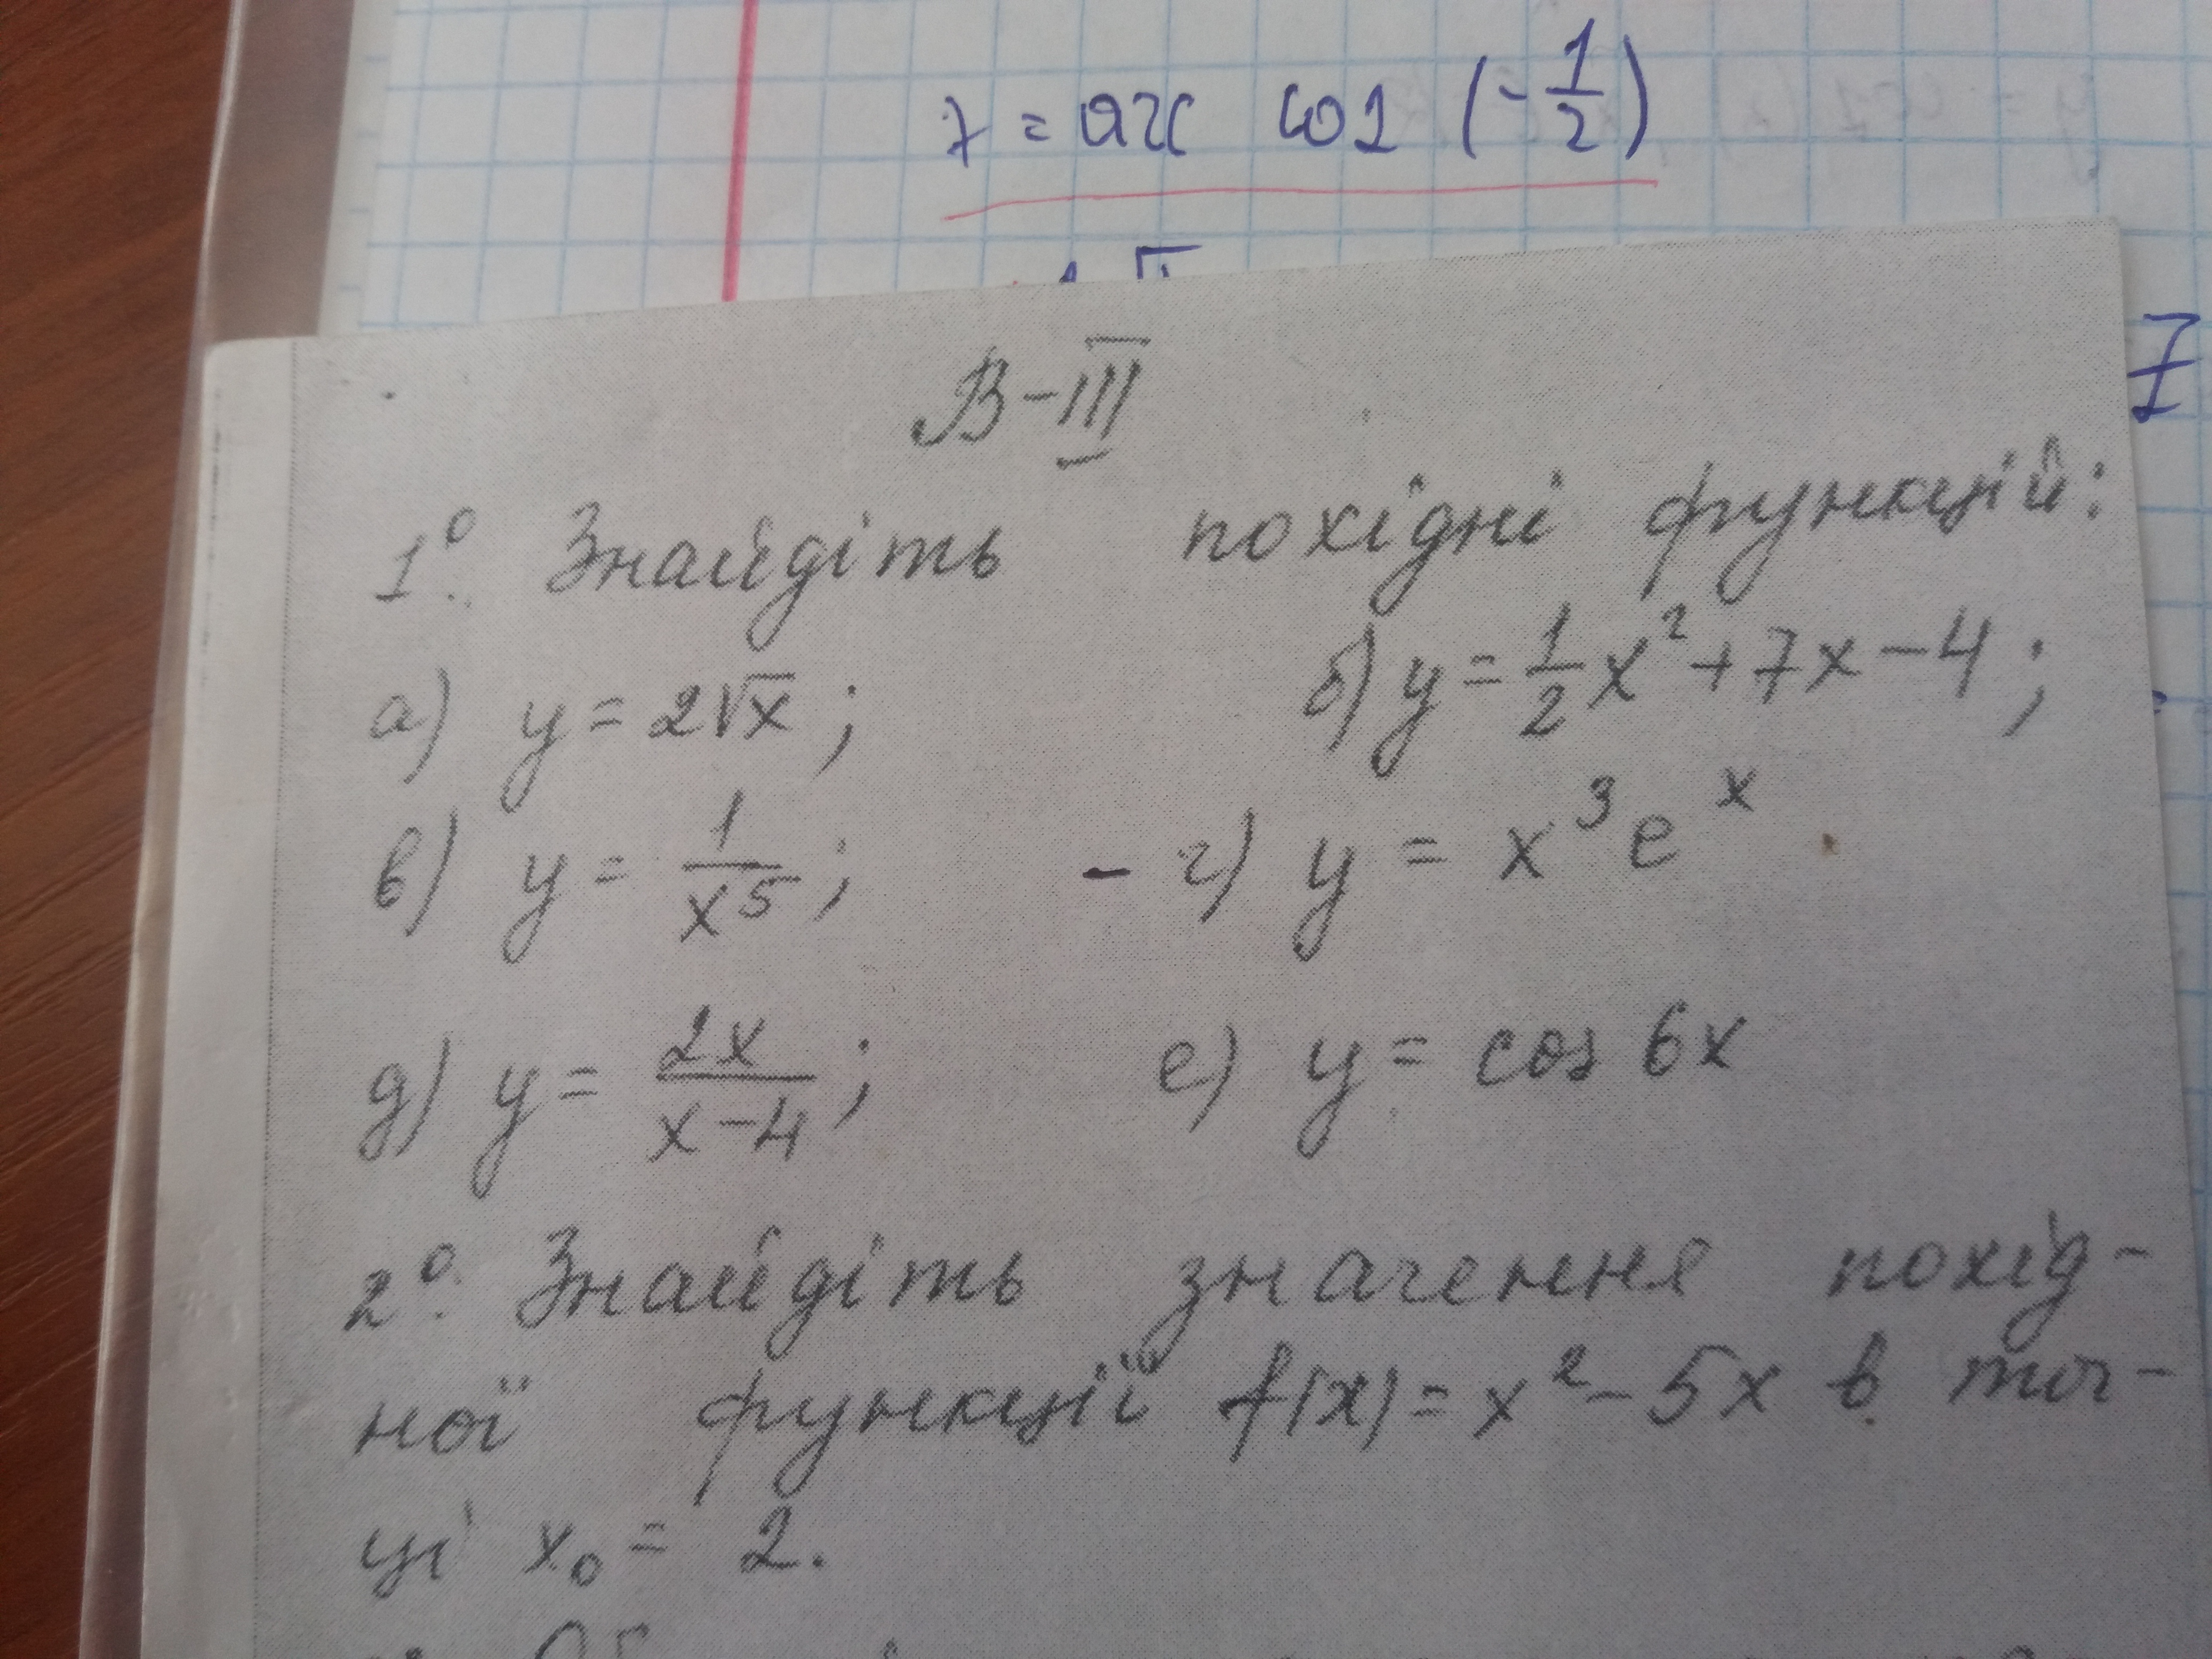 = arc cos (-1/2)
B-III
1°. Знайдіть похідні функцій:
а) y = 2√x; б) y = 1/2 x² + 7x - 4;
в) y = 1/x⁵; - г) y = x³e^x
д) y = 2x/(x-4); е) y = cos 6x
2°. Знайдіть значення похід-
ної функції f(x) = x² - 5x в точ-
ці x₀ = 2.